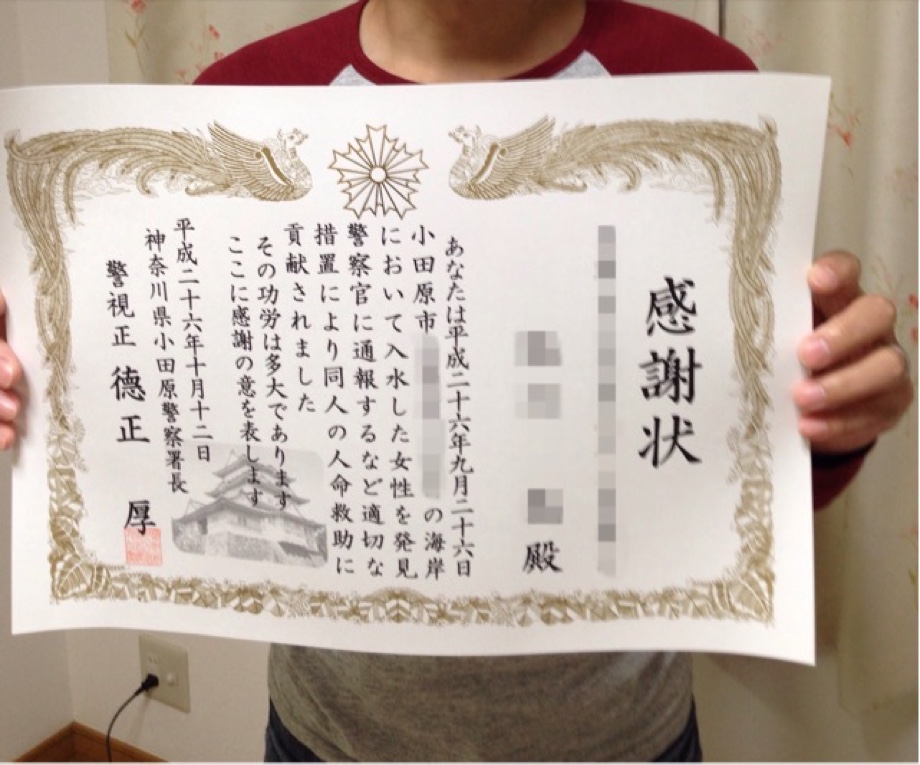 感謝状
殿
あなたは平成二十六年九月二十六日
小田原市 の海岸
において入水した女性を発見
警察官に通報するなど適切な
措置により同人の人命救助に
貢献されました
その功労は多大であります
ここに感謝の意を表します
平成二十六年十月十二日
神奈川県小田原警察署長
警視正 德正 厚